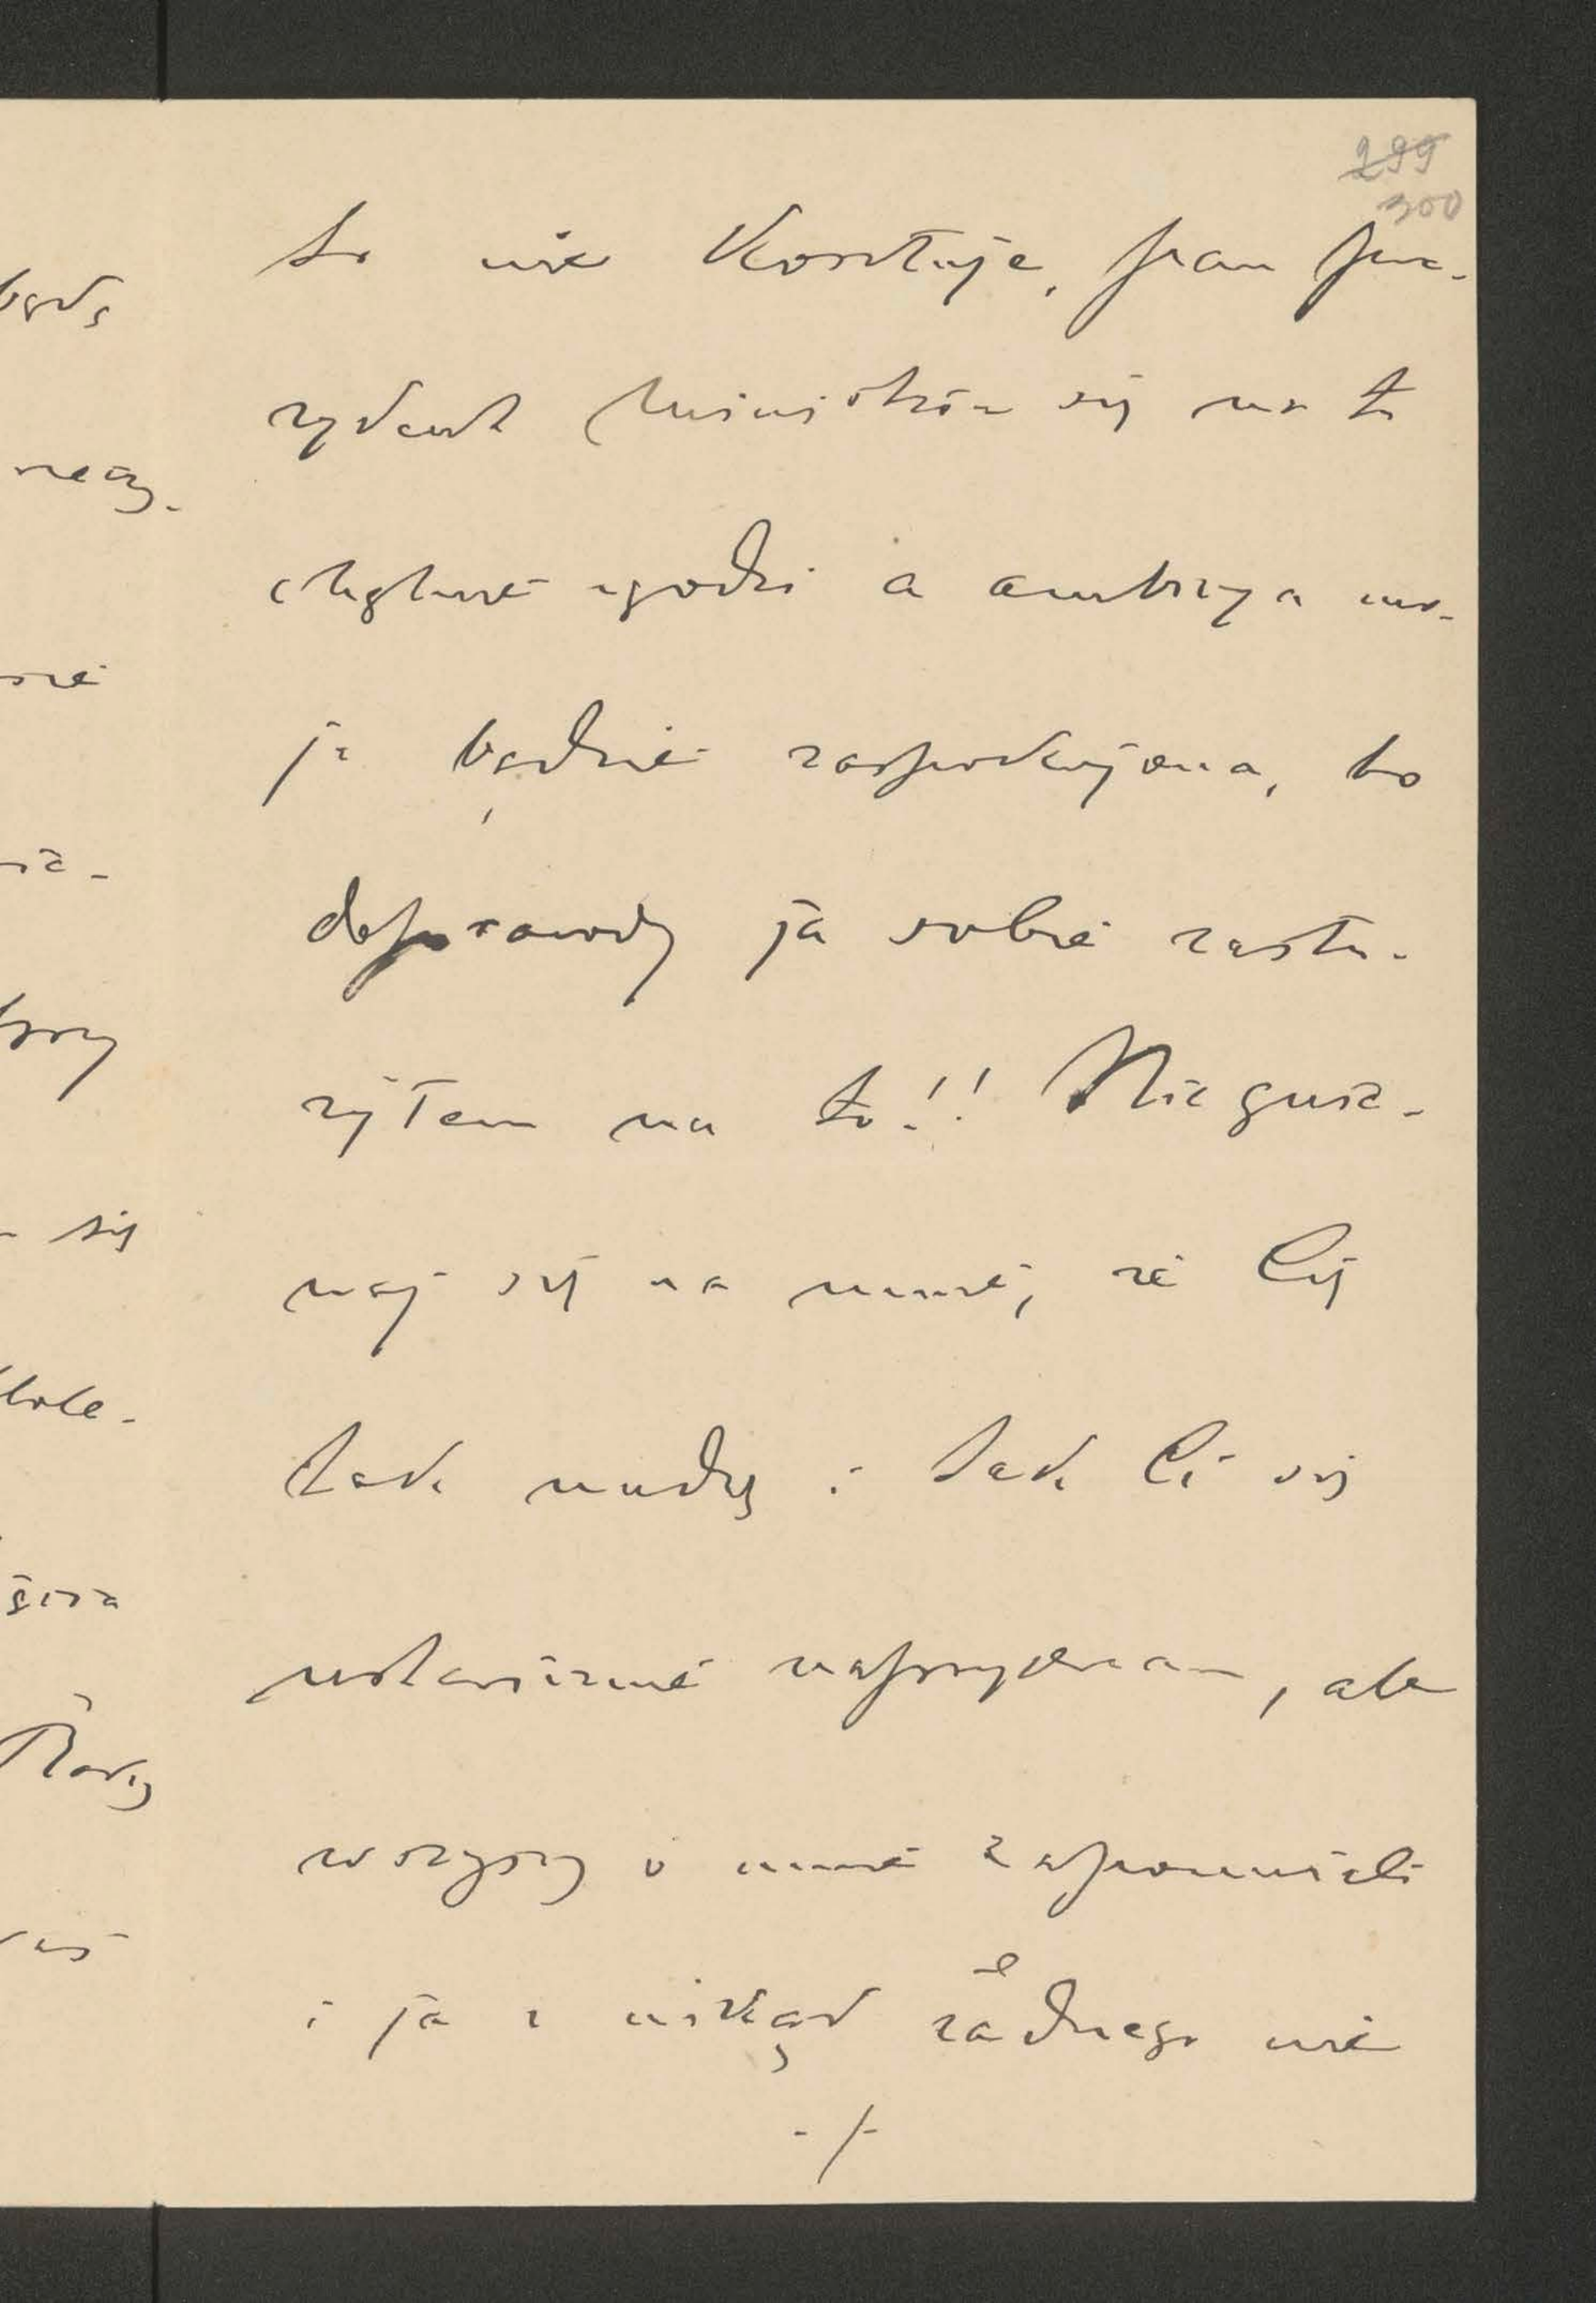 299
300
to nie kosztuje, pan pre-
zydent ministrów się na to
chętnie zgodzi a ambicya mo-
ja będzie zaspokojona, bo
doprawdy ja sobie zasłu-
żyłem na to!! Nie gnie-
waj się na mnie, że Cię
tak nudzę i tak Ci się
ustawicznie naprzykrzam, ale
wszyscy o mnie zapomnieli
i ja z nikąd żadnego nie
./.
będę
się